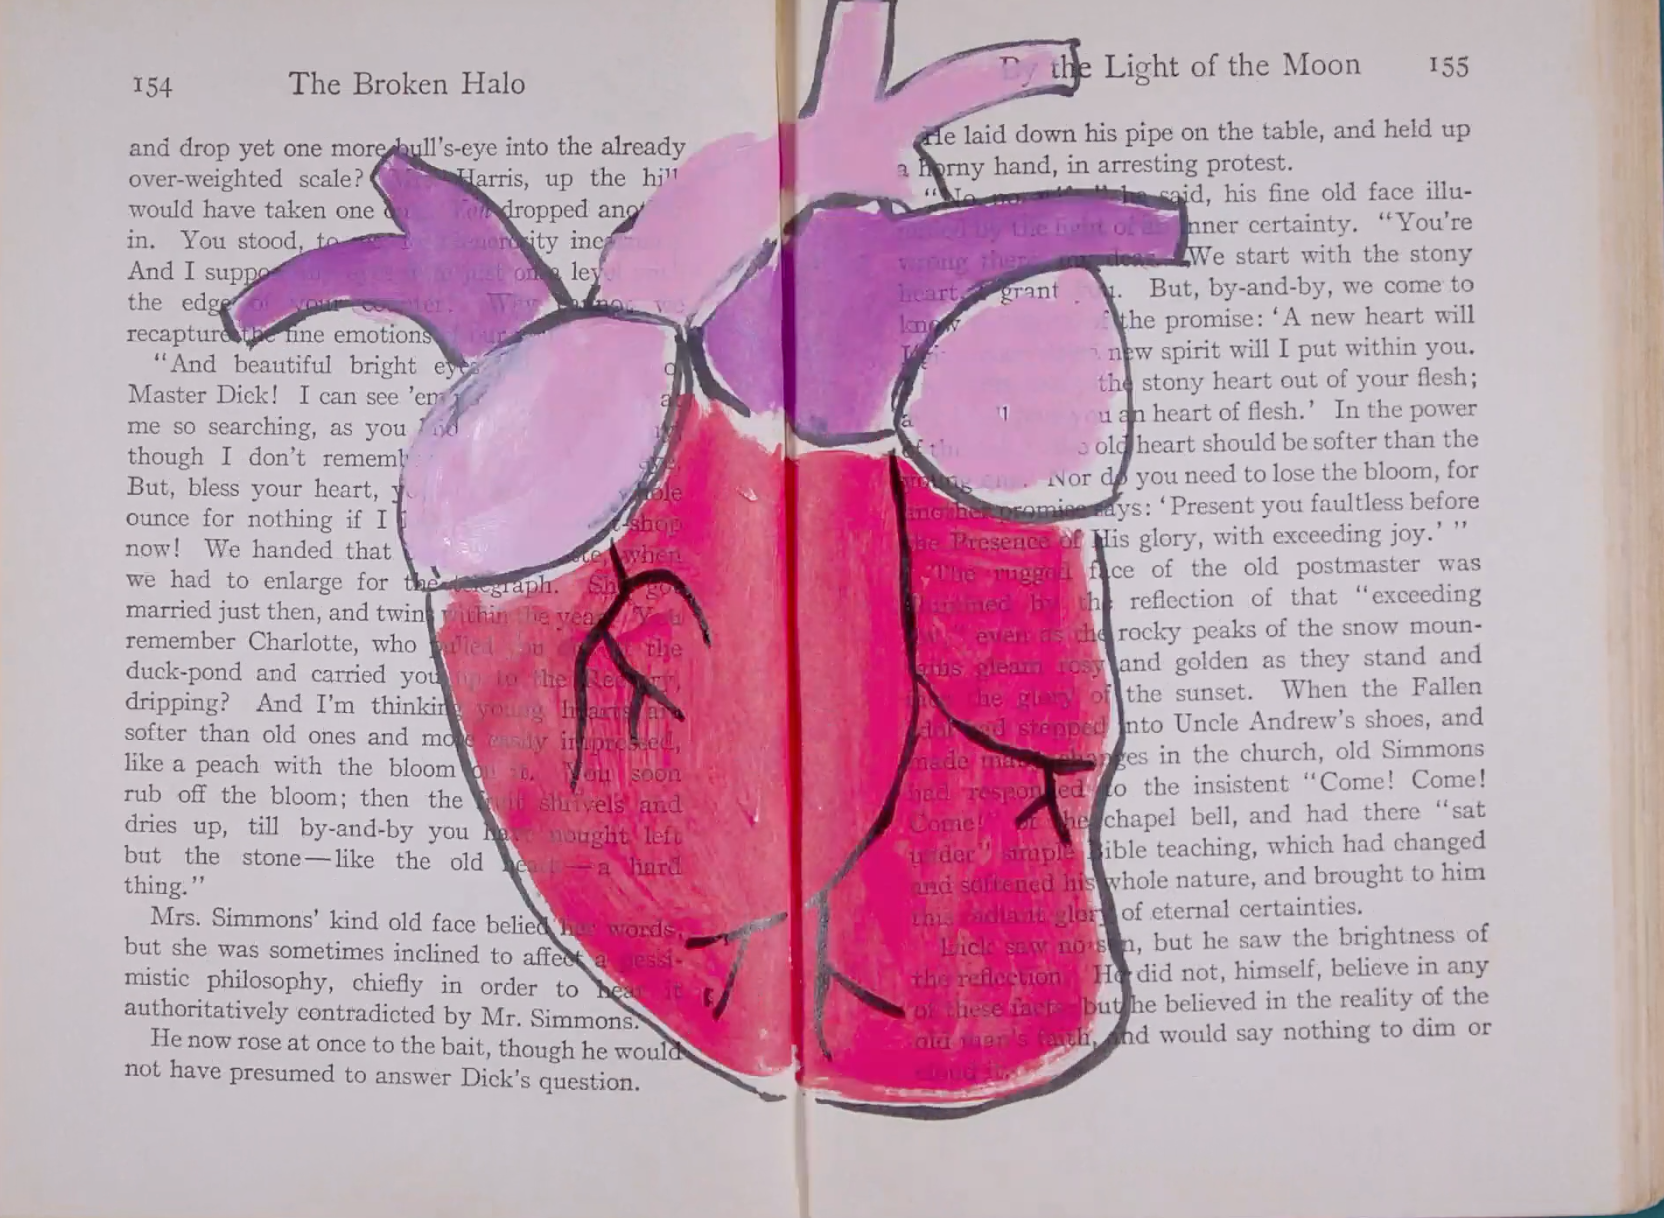 154 The Broken Halo
and drop yet one more bull's-eye into the already
over-weighted scale? Harris, up the hill
would have taken one dropped
in. You stood,
And I on
the edge of your counter.
recapture the fine emotions
"And beautiful bright eyes
Master Dick! I can see 'em
me so searching, as you
though I don't
But, bless your heart,
ounce for nothing if I
now! We handed that
we had to enlarge for the telegraph. She got
married just then, and twins within the year. You
remember Charlotte, who pulled you out the
duck-pond and carried you up to the Rectory,
dripping? And I'm thinking young hearts are
softer than old ones and more easily impressed,
like a peach with the bloom on it. You soon
rub off the bloom; then the fruit shrivels and
dries up, till by-and-by you have nought left
but the stone—like the old heart—a hard
thing."
Mrs. Simmons' kind old face belied her words,
but she was sometimes inclined to affect a pessi-
mistic philosophy, chiefly in order to hear it
authoritatively contradicted by Mr. Simmons.
He now rose at once to the bait, though he would
not have presumed to answer Dick's question.
By the Light of the Moon 155
He laid down his pipe on the table, and held up
a horny hand, in arresting protest.
"No, no, he said, his fine old face illu-
mined by the light of an inner certainty. "You're
wrong there, my dear. We start with the stony
heart, I grant you. But, by-and-by, we come to
know of the promise: 'A new heart will
new spirit will I put within you.
the stony heart out of your flesh;
you an heart of flesh.' In the power
of the old heart should be softer than the
young one. Nor do you need to lose the bloom, for
another promise says: 'Present you faultless before
the Presence of His glory, with exceeding joy.' "
The rugged face of the old postmaster was
illumined by the reflection of that "exceeding
joy," even as the rocky peaks of the snow moun-
tains gleam rosy and golden as they stand and
the glory of the sunset. When the Fallen
Idol had stepped into Uncle Andrew's shoes, and
made many changes in the church, old Simmons
had responded to the insistent "Come! Come!
Come!" of the chapel bell, and had there "sat
under" simple Bible teaching, which had changed
and softened his whole nature, and brought to him
this radiant glory of eternal certainties.
Dick saw no sun, but he saw the brightness of
the reflection. He did not, himself, believe in any
of these facts—but he believed in the reality of the
old man's faith, and would say nothing to dim or
cloud it.